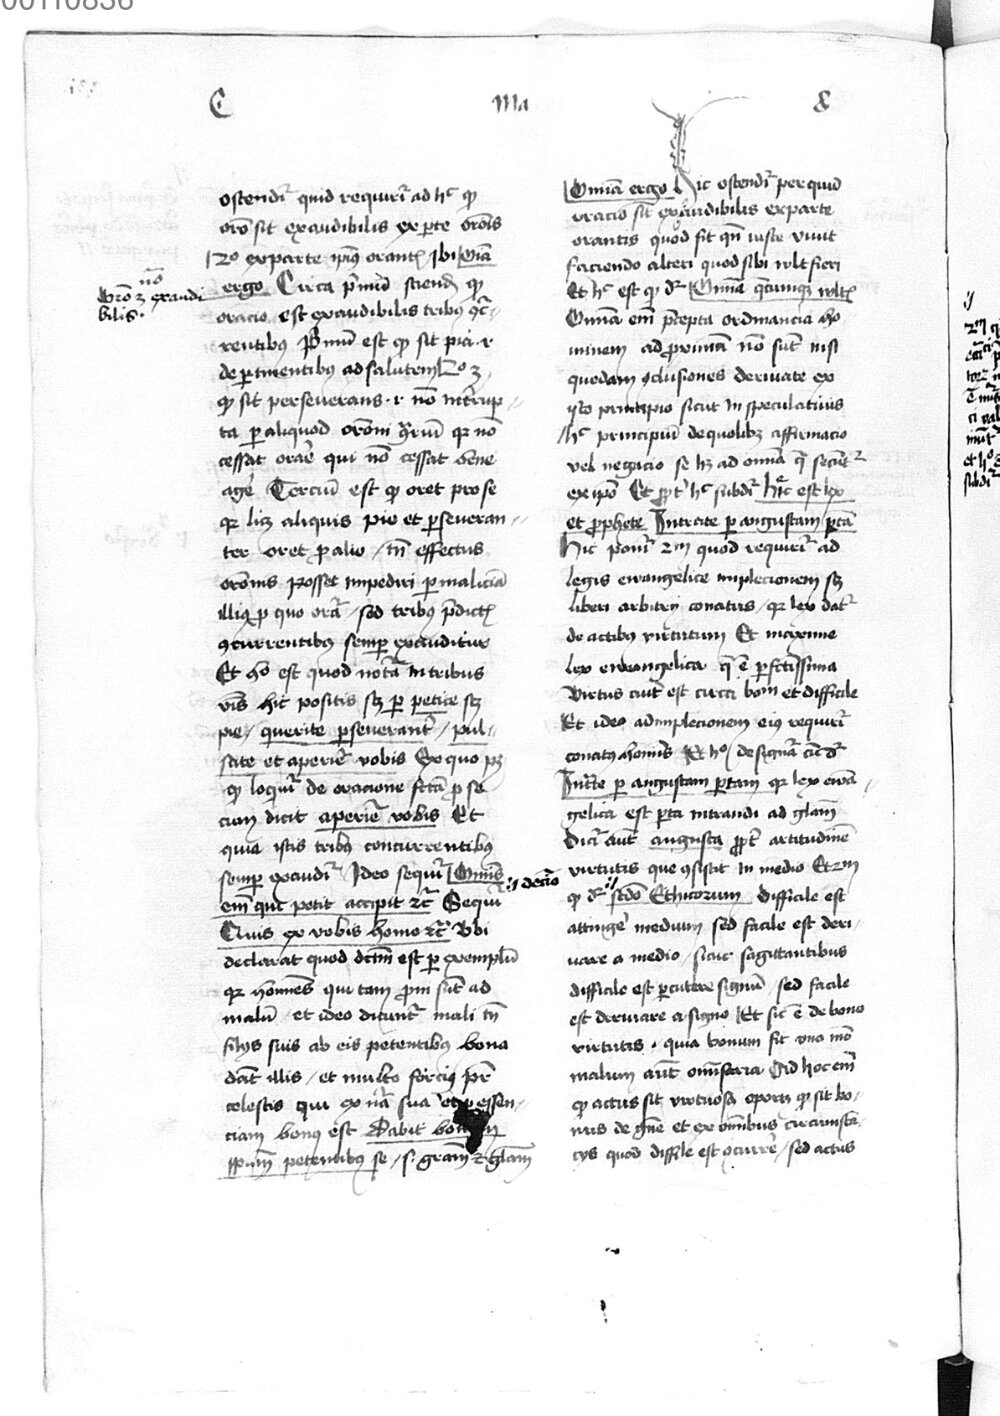 00110836
C Ma &
ostendit᷑ quid requirit᷑ ad hͨ ꝙ
oro͞ sit exaudibilis ex ꝑte oro͞is
2o ex parte ip̄iꝰ orant͛ Ibi Oi͞a
ergo Circa pͥmu͞ sciend͛ ꝙ
no͞
oro͞ ꝫ exaudi
bilis.
oracio est exaudibilis tribꝰ ꝯcͬ-
rentibus Pͥmu͞ est ꝙ sit pia .i.
de ꝑtinentibus ad salutem 2o ꝫ
ꝙ sit perseverans .i. no͞ int͛rup
ta ꝑ aliquod oro͞ni ꝯ͛riu͞ qꝛ no͞
cessat orar͛ qui no͞ cessat bene
ager͛ Terciu͞ est ꝙ oret pro se
qꝛ lꝫ aliquis pie et ꝑseveran
ter oret ꝓ alio / tn͞ effectus
oro͞nis posset impediri ꝑ malicia͞
illiꝰ ꝓ quo orat᷑ / sed tribꝰ p͛dict͛
ꝯcurrentibꝰ semꝑ exauditur
Et ho est quod notat᷑ in tribus
v͛bis hic positis sꝫ ꝑ petite sꝫ
pie / querite ꝑseverant͛ / pul-
sate et aperiet᷑ vobis Ex quo pꝫ
ꝙ loquit᷑ de oracione f͛cta ꝓ se
cum dicit aperiet᷑ vobis Et
quia istis tribꝰ concurrentibꝰ
semꝑ exaudit᷑ Ideo sequit᷑ Omnis
em͞ qui petit accipit ꝛc͛ Sequit᷑
// dec͛io
Quis ex vobis homo ꝛc͛ Ubi
declarat quod dictu͞ est ꝑ exemplu͞
qꝛ homines qui tam proni su͞t ad
malu͞ / et ideo dicunt᷑ mali tn͞
filijs suis ab eis petentibꝰ bona
da͞t illis / et multo forciꝰ pr͛
celestis qui ex na͛ sua essen-
ciam bonꝰ est Dabit bonu͞
spm͞ petentibꝰ se / .s. gra͞m ꝛ gl͛am
Omnia ergo Hic ostendit᷑ per quid
oracio sit exaudibilis ex parte
orantis quod fit qn͞ iuste vivit
faciendo alteri quod sibi vult fieri
Et hͨ est ꝙ dr͛ Omnia q͛cumqꝫ vult͛
Omnia em͞ p͛cepta ordinancia ho
minem ad proximu͞ no͞ sunt nisi
quedam ꝯclusiones derivate ex
isto principio sicut in speculativis
hͨ principiu͞ de quolibꝫ affirmacio
vel negacio se hꝫ ad omnia q͛ secunt᷑
ex ipo͞ Et ꝓpt͛ hͨ subdit᷑ hͨ est lex
et prophete Intrate ꝑ angustam ꝑta͞
Hic ponit᷑ 2m quod requirit᷑ ad
legis ewangelice implecionem sꝫ
liberi arbitrij conatus / qꝛ lex dat᷑
de actibꝰ virtutum Et maxime
lex ewangelica q͛ e͞ ꝑfectissima
Virtus aut͛ est circa bonu͞ et difficile
Et ideo ad implecionem eiꝰ requirit᷑
conatꝰ hominis Et ho designat᷑ cu͞ dr͛
Intrate ꝑ angustam portam qꝛ lex ewa͞
gelica est porta intrandi ad gl͛am
Dicit᷑ aut͛ angusta ꝓpt͛ artitudine͞
virtutis que ꝯsistit in medio Et 2m
ꝙ dr͛ // scdo͞ Ethicorum difficile est
attinger͛ medium sed facile est deri
vare a medio / sicut sagittantibus
difficile est ꝑcutere signu͞ / sed facile
est derivare a signo Et sic e͞ de bono
virtutis . quia bonum fit uno mo͞
malum aut͛ omnifaria Ad hoc em͞
ꝙ actus sit virtuosꝰ oportet ꝙ sit bo-
nus de gn͛e et ex omnibus circumsta͞
cijs quod difficile est ꝯcurrer͛ / sed actus